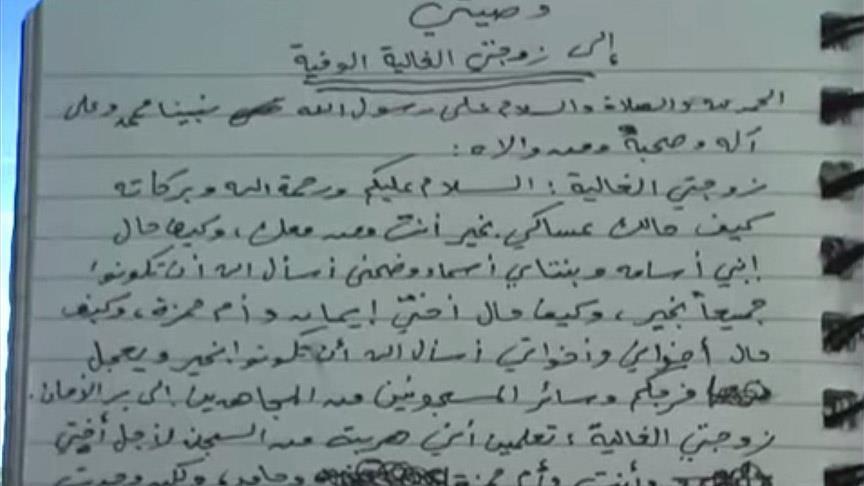 وصيتي
إلى زوجتي الغالية الوفية
الحمد لله والصلاة والسلام على رسول الله نبينا محمد وعلى
آله وصحبه ومن والاه :
زوجتي الغالية : السلام عليكم ورحمة الله وبركاته
كيف حالك عساكي بخير أنت ومن معك ، وكيف حال
إبني أسامه وبنتاي أسماء وضحى أسأل الله أن تكونوا
جميعاً بخير ، وكيف حال أختي إيمان وأم حمزة ، وكيف
حال أخواي وأخواتي أسأل الله أن تكونوا بخير ويعجل
فرجكم وسائر المسجونين من المجاهدين إلى بر الأمان .
زوجتي الغالية ؛ تعلمين أنني هربت من السجن لأجل أختي
وأنت وأم حمزة وحامد ، ولكن وجدت